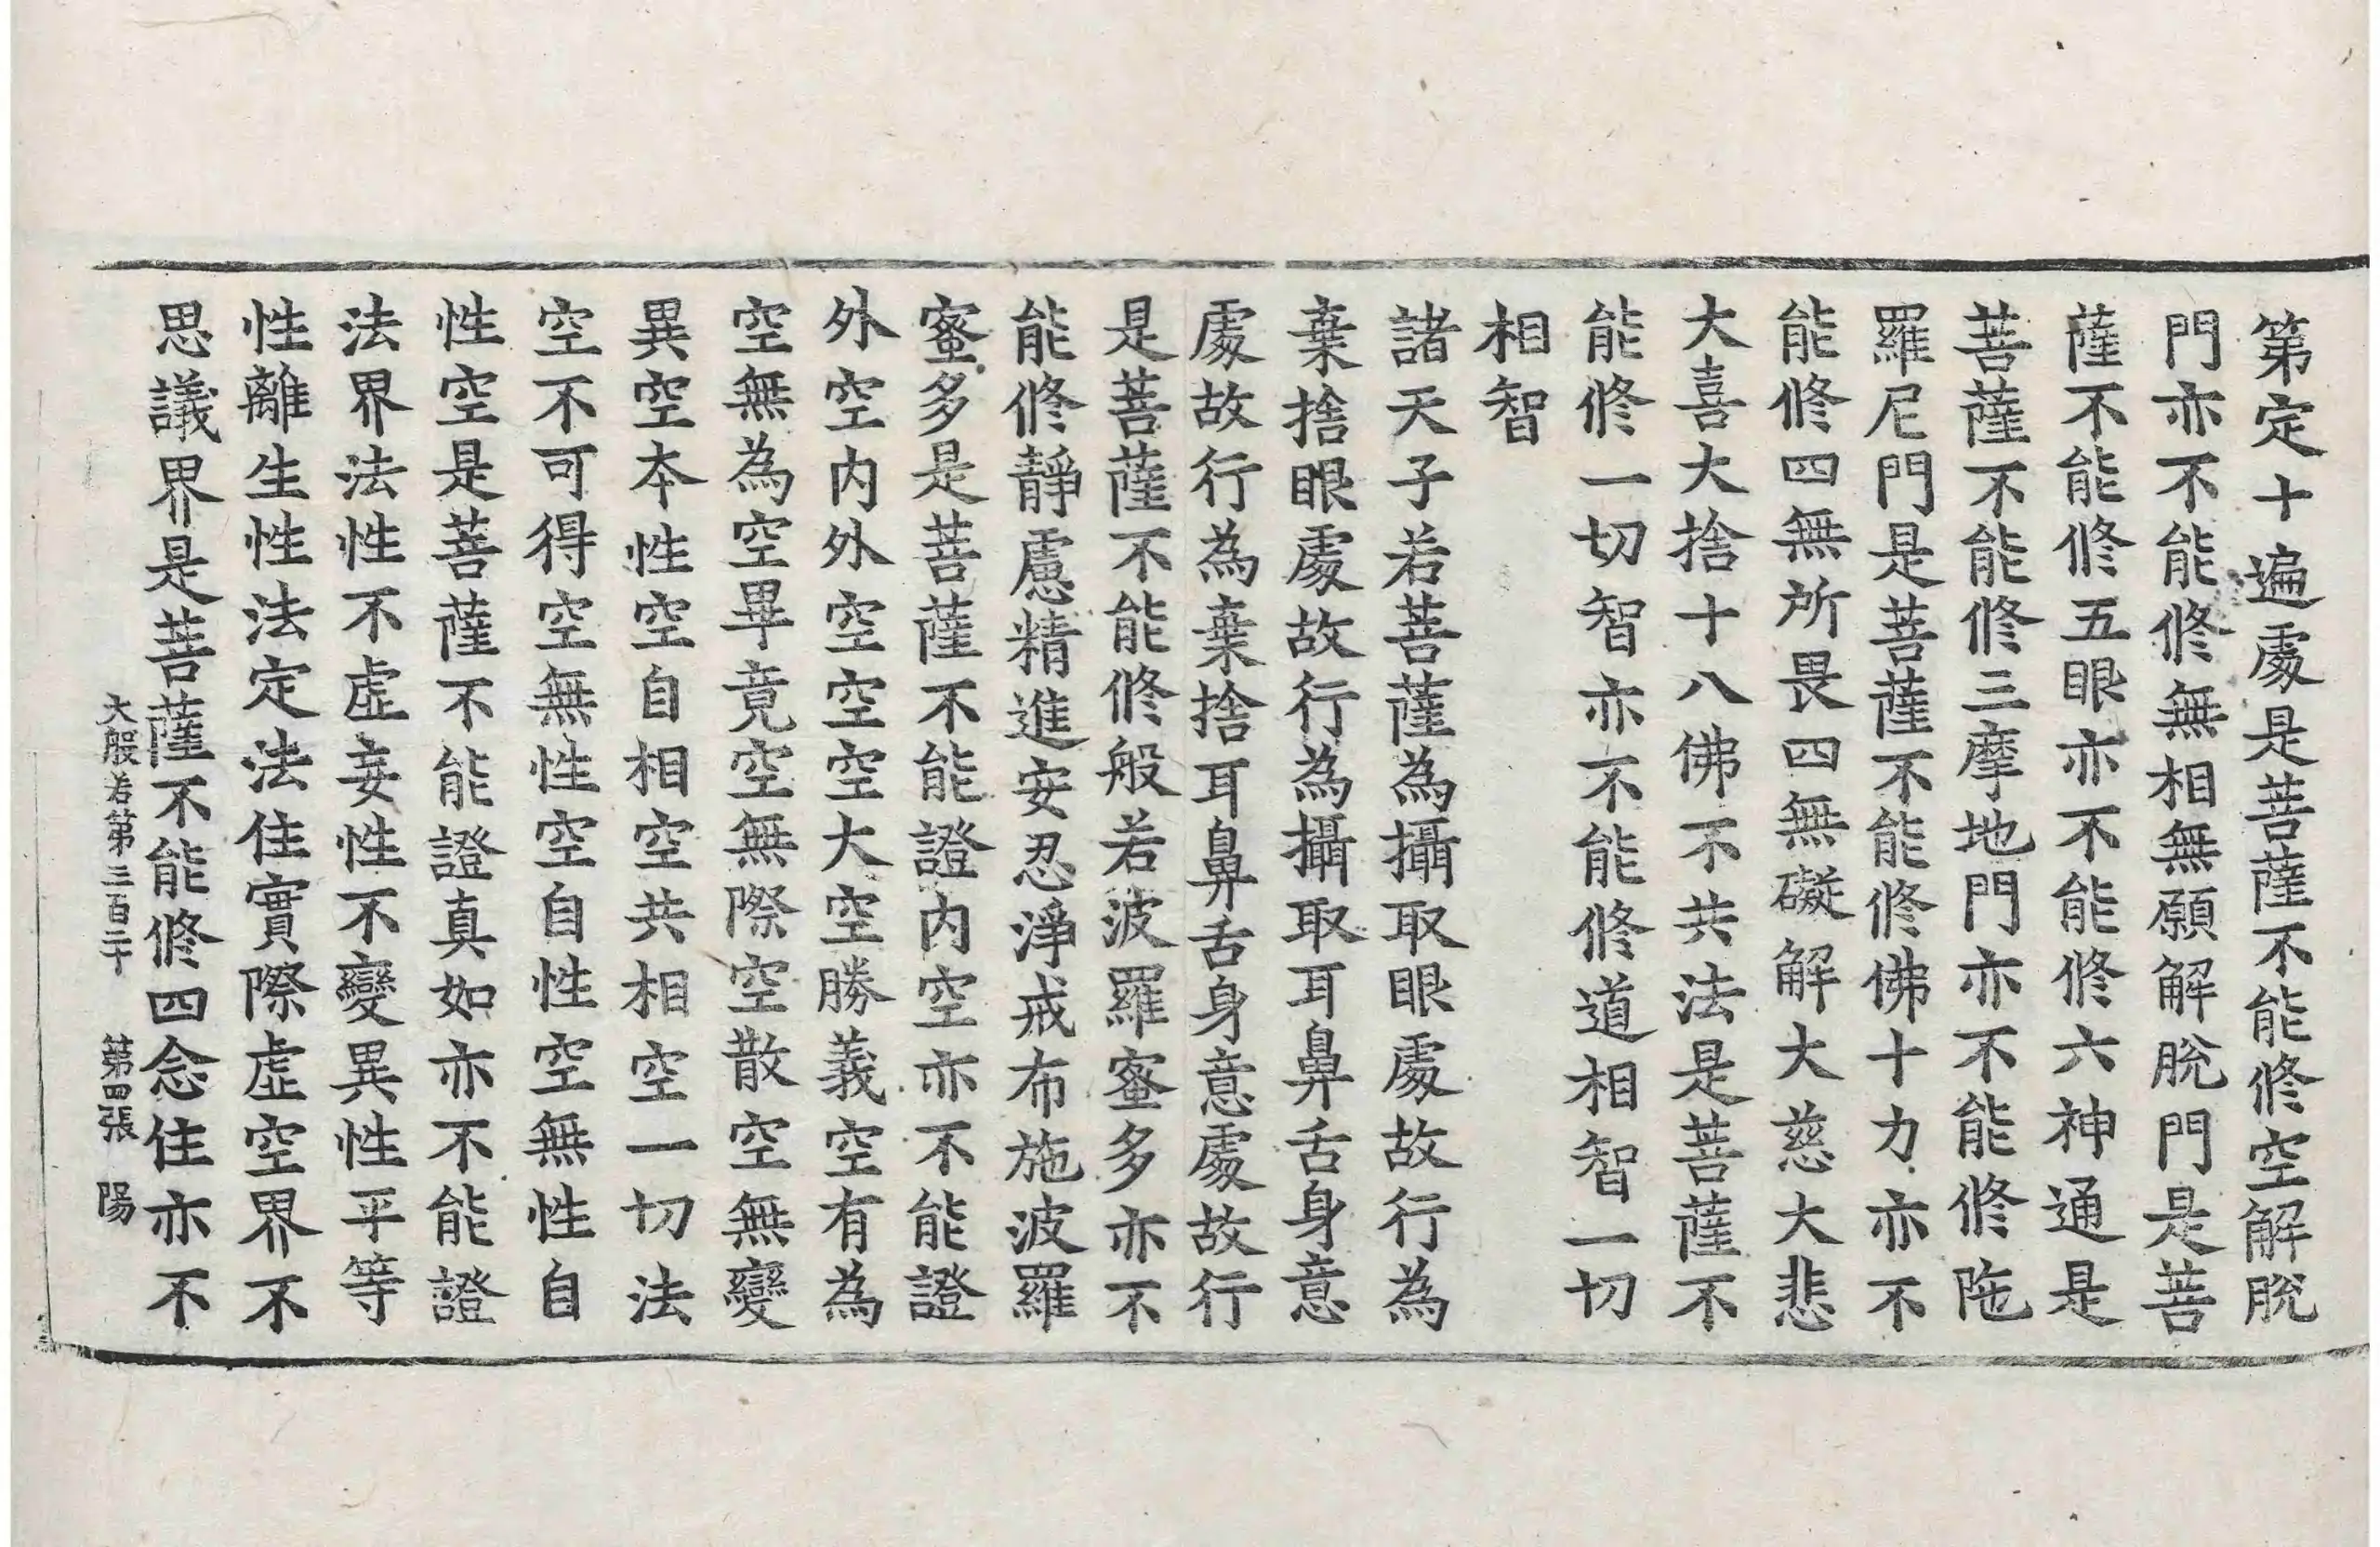 第定十遍處是菩薩不能修空解脫
門亦不能修無相無願解脫門是菩
薩不能修五眼亦不能修六神通是
菩薩不能修三摩地門亦不能修陁
羅尼門是菩薩不能修佛十力亦不
能修四無所畏四無礙解大慈大悲
大喜大捨十八佛不共法是菩薩不
能修一切智亦不能修道相智一切
相智
諸天子若菩薩為攝取眼處故行為
棄捨眼處故行為攝取耳鼻舌身意
處故行為棄捨耳鼻舌身意處故行
是菩薩不能修般若波羅蜜多亦不
能修靜慮精進安忍淨戒布施波羅
蜜多是菩薩不能證內空亦不能證
外空內外空空空大空勝義空有為
空無為空畢竟空無際空散空無變
異空本性空自相空共相空一切法
空不可得空無性空自性空無性自
性空是菩薩不能證真如亦不能證
法界法性不虛妄性不變異性平等
性離生性法定法住實際虛空界不
思議界是菩薩不能修四念住亦不
大般若第三百二十　第四張　陽